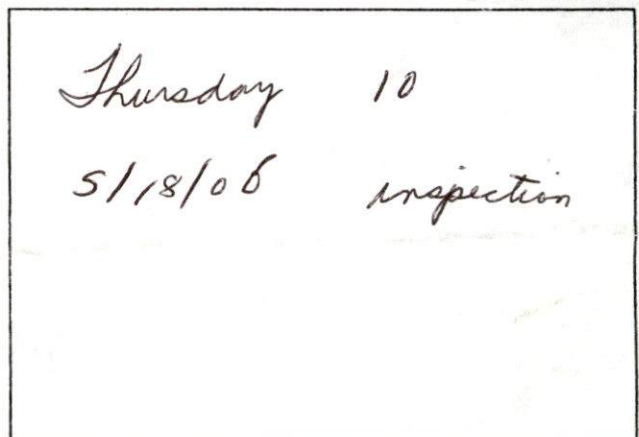 Thursday 10
5/18/06 inspection